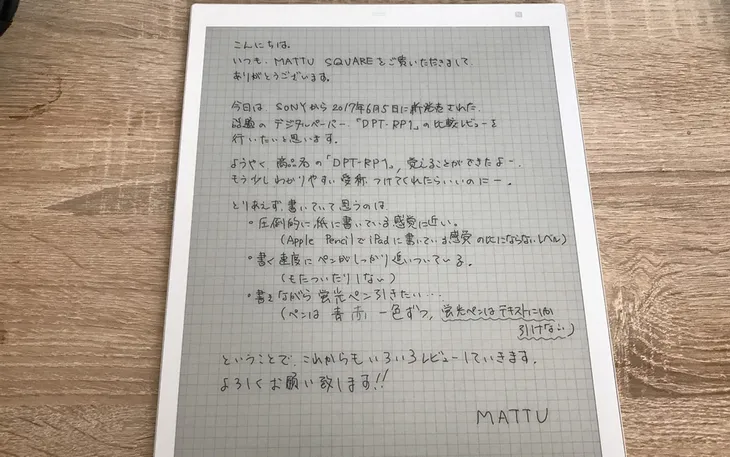 こんにちは。
いつも、MATTU SQUAREをご覧いただきまして
ありがとうございます。
今日は SONYから2017年6月5日に新発売された
話題の デジタルペーパー「DPT-RP1」の比較レビューを
行いたいと思います。
ようやく 商品名の「DPT-RP1」、覚えることができたよー。
もう少しわかりやすい愛称 つけてくれたらいいのにー。
とりあえず、書いていて思うのは
・圧倒的に紙に書いている感覚に近い。
(Apple PencilでiPadに書いている感覚の比にならないレベル)
・書く速度にペンがしっかり追いついている。
(もたついたりしない)
・書きながら蛍光ペン引きたい…
(ペンは 青 赤 一色ずつ, 蛍光ペンはテキストにしか
引けない)
ということで、これからもいろいろレビューしていきます。
よろしくお願い致します!!
MATTU